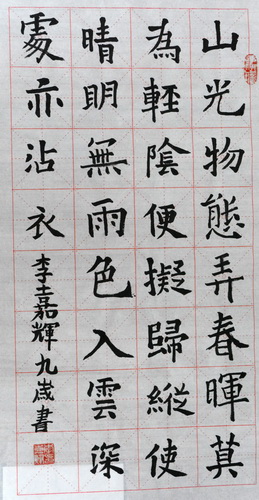 山光物態弄春暉莫
為輕陰便擬歸縱使
晴明無雨色入雲深
處亦沾衣
李嘉輝九歲書